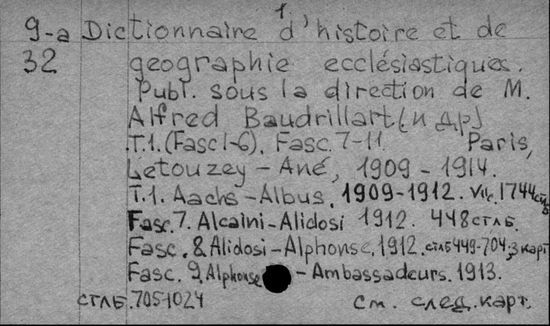 1
9-a Dictionnaire d'histoire et de
32 geographie ecclésiastiques.
Publ. sous la direction de M.
Alfred Baudrillart (и др)
T.1. (Fasc 1-6). Fasc. 7-11. Paris,
Letouzey - Ané, 1909 - 1914.
T.1. Aachs - Albus. 1909-1912. VII с. 1744 стлб
Fasc. 7. Alcaini - Alidosi 1912. 448 стлб.
Fasc. 8. Alidosi - Alphonse. 1912. стлб 449-704, 3 карт
Fasc. 9. Alphonse - Ambassadeurs. 1913.
стлб. 705-1024 см. след. карт.